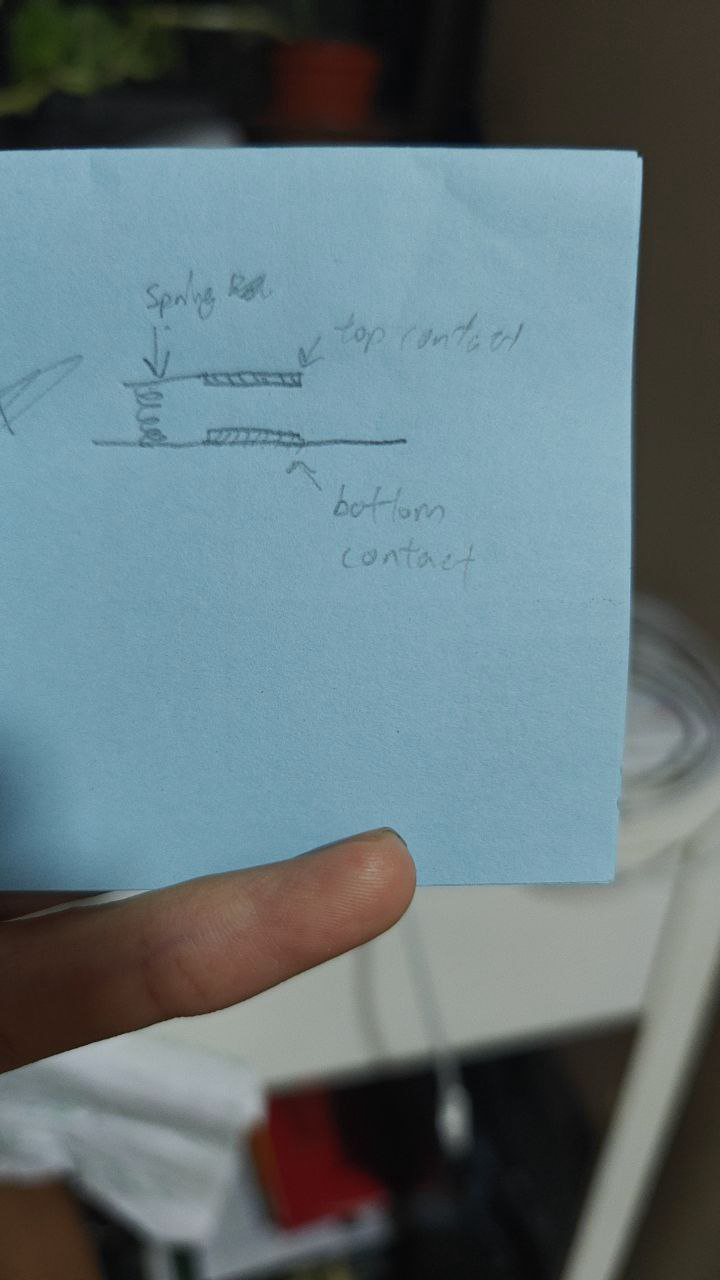 Spring
top contact
bottom
contact